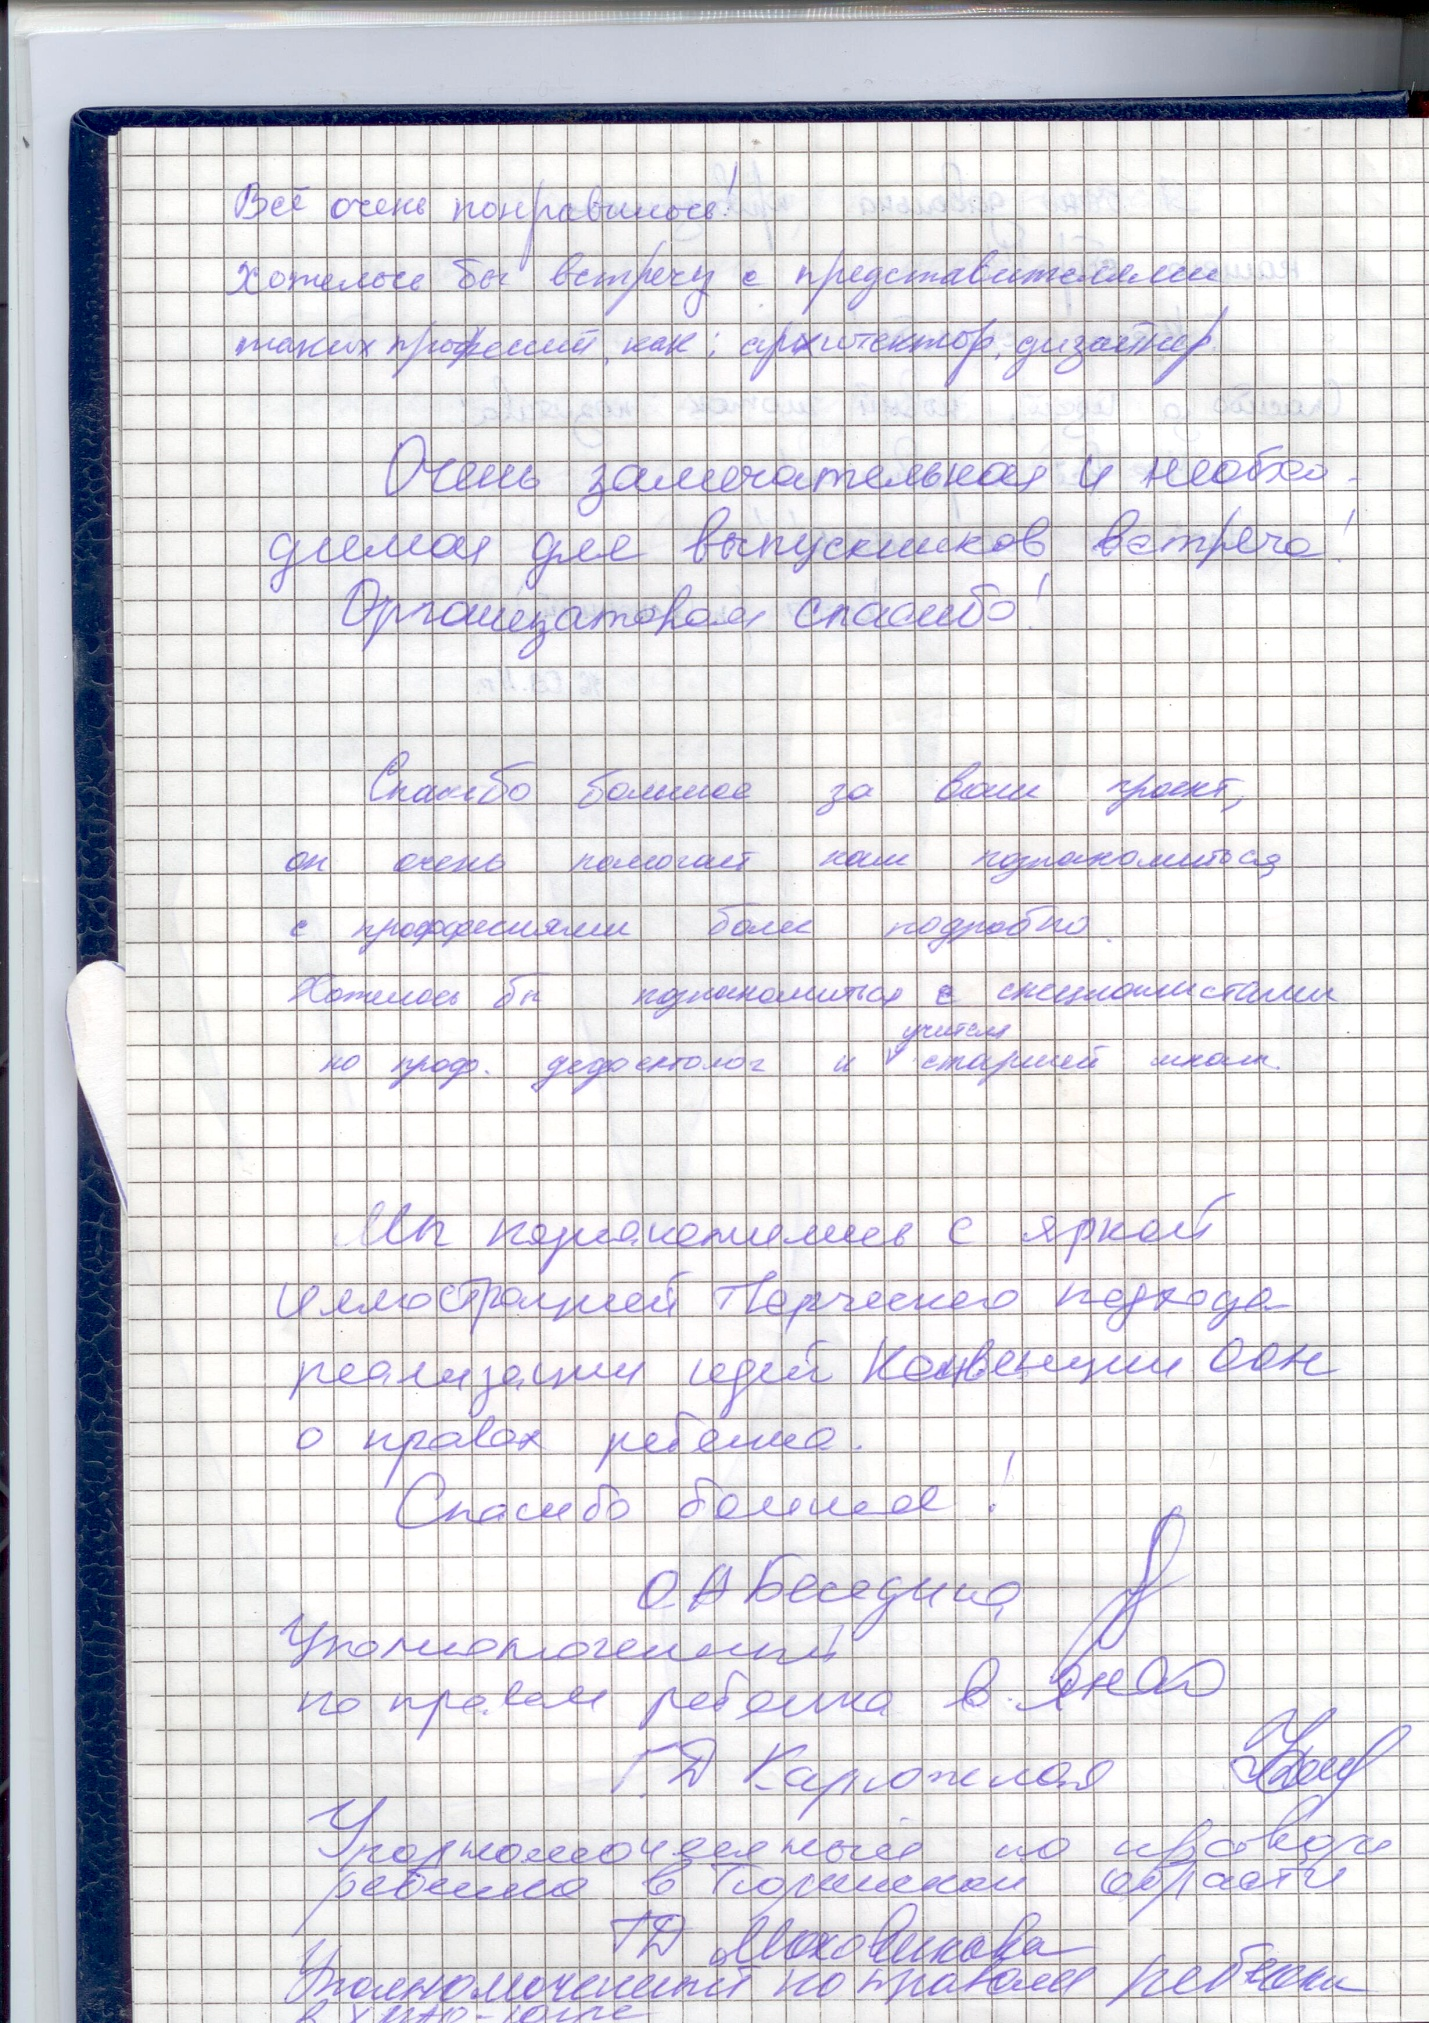 Всё очень понравилось!
Хотелось бы встречу с представителями
таких профессий, как: архитектор, дизайнер.
Очень замечательная и необхо-
димая для выпускников встреча!
Организаторам спасибо!
Спасибо большое за ваш проект,
он очень помогает нам познакомиться
с проффесиями более подробно.
Хотелось бы познакомиться с специалистами
учителя
по проф. дефектолог и старшей школы.
Мы познакомились с яркой
иллюстрацией творческого подхода
реализации идей Конвенции ООН
о правах ребенка.
Спасибо большое!
О А Беседина
Уполномоченный
по правам ребенка в ЯНАО
Уполномоченный по правам
ребенка в Тюменской области
ТД Моховикова
Уполномоченный по правам ребенка
в ХМАО-Югре